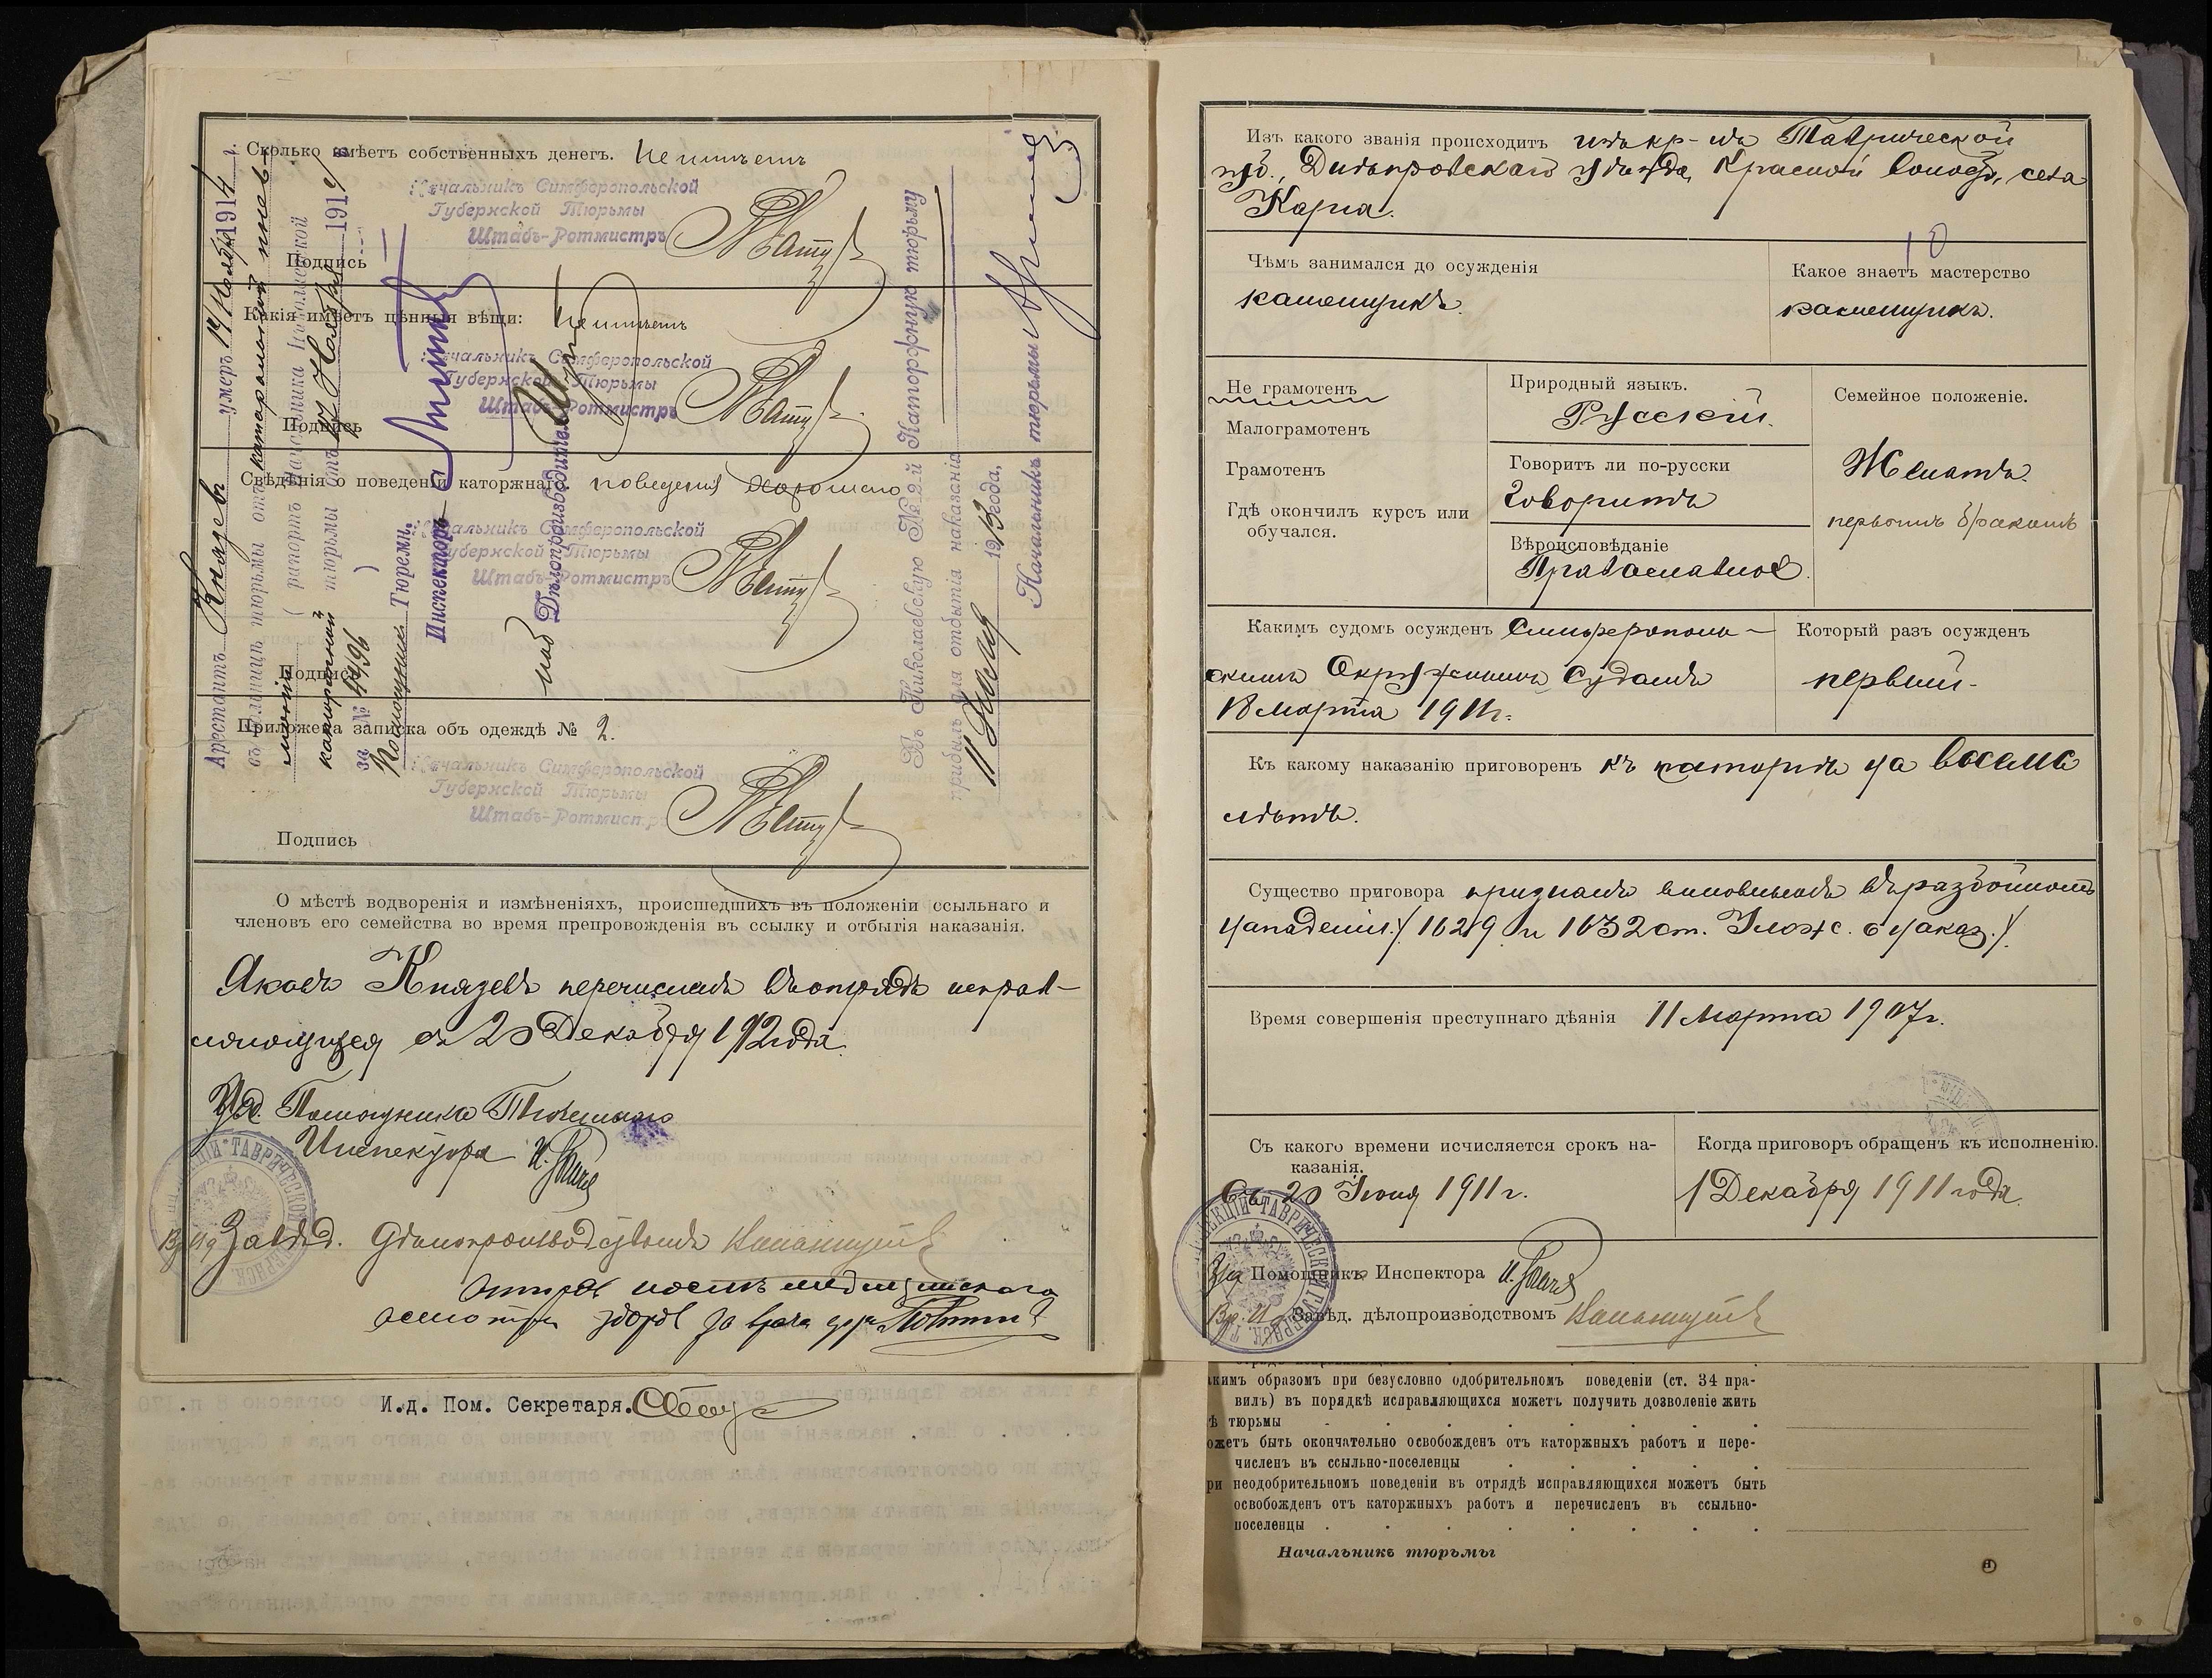 Сколько имѣетъ собственныхъ денегъ. Не имѣетъ
Начальникъ Симферопольской
Губернской Тюрьмы
Штабъ-Ротмистръ
Подпись
Какія имѣетъ цѣнныя вѣщи: Не имѣетъ
Начальникъ Симферопольской
Губернской Тюрьмы
Штабъ-Ротмистръ
Подпись
Свѣдѣнія о поведеніи каторжнаго. поведенія хорошаго
Начальникъ Симферопольской
Губернской Тюрьмы
Штабъ-Ротмистръ
Подпись
Приложена записка объ одеждѣ № 2.
Начальникъ Симферопольской
Губернской Тюрьмы
Штабъ-Ротмистръ
Подпись
Арестантъ Князевъ умеръ 14 Ноября 1914 г.
въ больницѣ тюрьмы отъ катаральной пнев-
моніи ( рапортъ Начальника Николаевской
каторжной тюрьмы отъ Ноября 1914 г.
за № 4496 )
Помощникъ Тюремн.
Инспекторъ
Дѣлопроизводитель
Въ Николаевскую № 2-й Каторжную тюрьму
прибылъ для отбытія наказанія
11 1913 года.
Начальникъ тюрьмы
О мѣстѣ водворенія и измѣненіяхъ, происшедшихъ въ положеніи ссыльнаго и
членовъ его семейства во время препровожденія въ ссылку и отбытія наказанія.
Яковъ Князевъ перечисленъ въ отрядъ исправ-
ляющихся съ 20 Декабря 1912 года.
И.д. Помощника Тюремнаго
Инспектора
Вр. И д Завѣд. Дѣлопроизводствомъ
послѣ медицинскаго
осмотра здоровъ За врача
И.д. Пом. Секретаря.
Изъ какого званія происходитъ изъ кр-нъ Таврической
губ., Днѣпровскаго уѣзда, Красной волости, села
Карга.
10
Чѣмъ занимался до осужденія
каменщикъ.
Какое знаетъ мастерство
каменщика.
Не грамотенъ
Малограмотенъ
Грамотенъ
Гдѣ окончилъ курсъ или
обучался.
Природный языкъ.
Русскій.
Говоритъ ли по-русски
Говоритъ
Вѣроисповѣданіе
Православное.
Семейное положеніе.
Женатъ.
первымъ бракомъ
Какимъ судомъ осужденъ Симферополь-
скимъ Окружнымъ Судомъ
18 Марта 1911 г.
Который разъ осужденъ
первый.
Къ какому наказанію приговоренъ къ каторгѣ на восемь
лѣтъ.
Существо приговора признанъ виновнымъ въ разбойномъ
нападеніи. /1629 и 1632 ст. Улож. о наказ./.
Время совершенія преступнаго дѣянія 11 Марта 1907 г.
Съ какого времени исчисляется срокъ на-
казанія.
Съ 20 Іюня 1911 г.
Когда приговоръ обращенъ къ исполненію.
1 Декабря 1911 года.
Помощникъ Инспектора
Вр. И д Завѣд. дѣлопроизводствомъ
кимъ образомъ при безусловно одобрительномъ поведеніи (ст. 34 пра-
вилъ) въ порядкѣ исправляющихся можетъ получить дозволеніе жить
ѣ тюрьмы
ожетъ быть окончательно освобожденъ отъ каторжныхъ работъ и пере-
численъ въ ссыльно-поселенцы
ри неодобрительномъ поведеніи въ отрядѣ исправляющихся можетъ быть
освобожденъ отъ каторжныхъ работъ и перечисленъ въ ссыльно-
поселенцы
Начальникъ тюрьмы